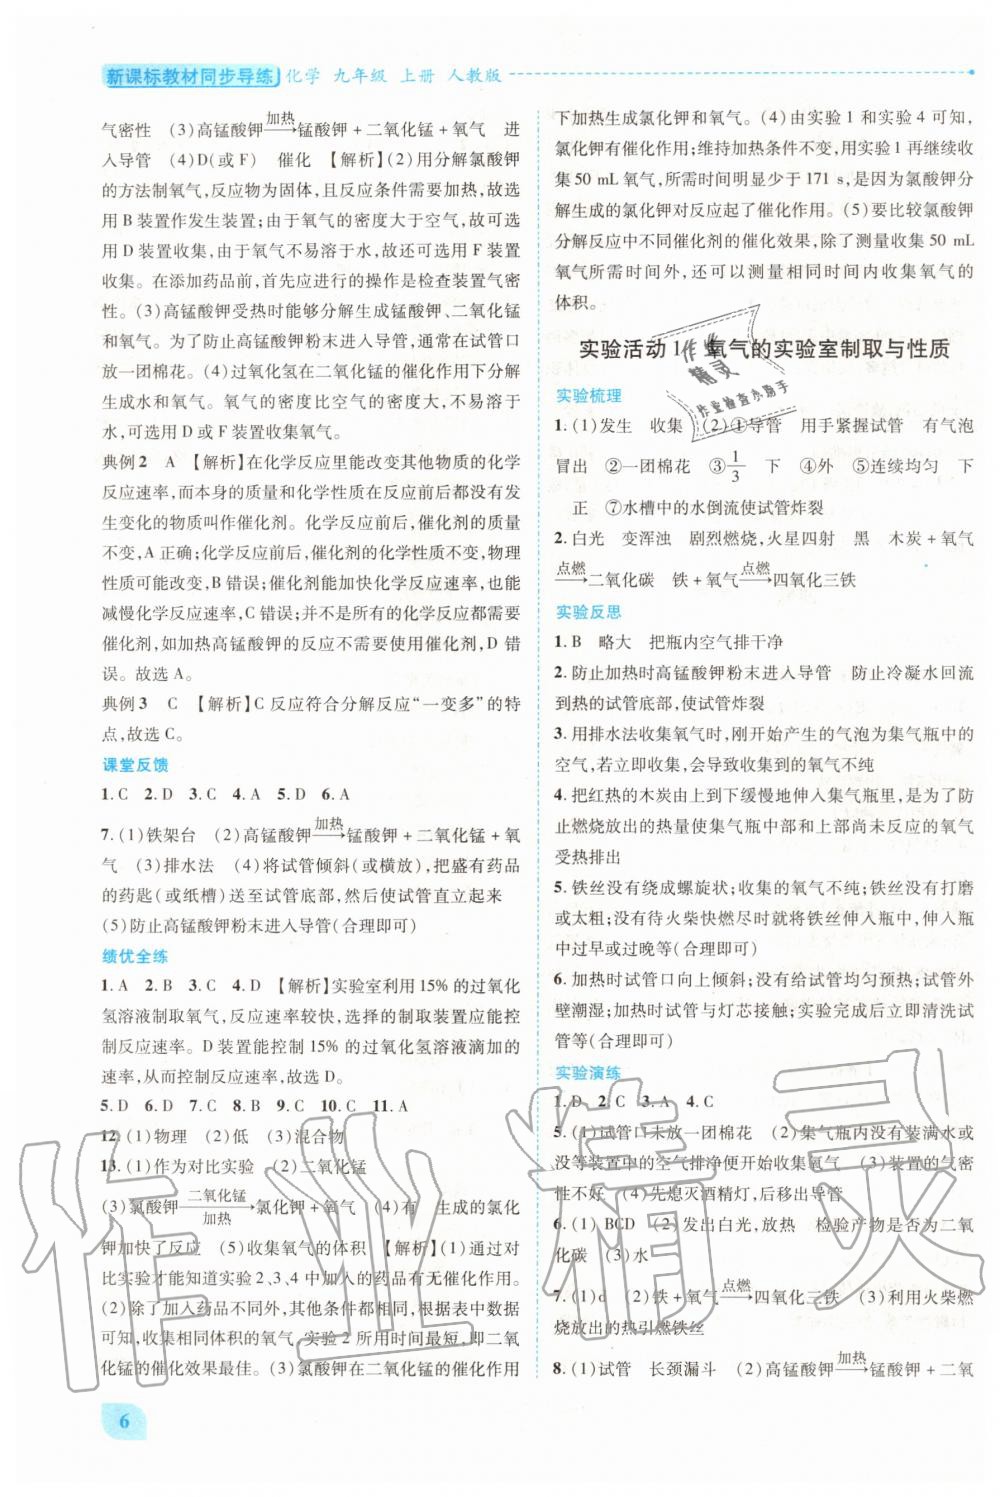 新课标教材同步导练 化学 九年级 上册 人教版
气密性 (3)高锰酸钾 加热→ 锰酸钾＋二氧化锰＋氧气 进
入导管 (4)D(或F) 催化 【解析】(2)用分解氯酸钾
的方法制氧气,反应物为固体,且反应条件需要加热,故选
用B装置作发生装置;由于氧气的密度大于空气,故可选
用D装置收集,由于氧气不易溶于水,故还可选用F装置
收集。在添加药品前,首先应进行的操作是检查装置气密
性。(3)高锰酸钾受热时能够分解生成锰酸钾、二氧化锰
和氧气。为了防止高锰酸钾粉末进入导管,通常在试管口
放一团棉花。(4)过氧化氢在二氧化锰的催化作用下分解
生成水和氧气。氧气的密度比空气的密度大,不易溶于
水,可选用D或F装置收集氧气。
典例2 A 【解析】在化学反应里能改变其他物质的化学
反应速率,而本身的质量和化学性质在反应前后都没有发
生变化的物质叫作催化剂。化学反应前后,催化剂的质量
不变,A正确;化学反应前后,催化剂的化学性质不变,物理
性质可能改变,B错误;催化剂能加快化学反应速率,也能
减慢化学反应速率,C错误;并不是所有的化学反应都需要
催化剂,如加热高锰酸钾的反应不需要使用催化剂,D错
误。故选A。
典例3 C 【解析】C反应符合分解反应“一变多”的特
点,故选C。
课堂反馈
1.C 2.D 3.C 4.A 5.D 6.A
7.(1)铁架台 (2)高锰酸钾 加热→ 锰酸钾＋二氧化锰＋氧
气 (3)排水法 (4)将试管倾斜(或横放),把盛有药品
的药匙(或纸槽)送至试管底部,然后使试管直立起来
(5)防止高锰酸钾粉末进入导管(合理即可)
绩优全练
1.A 2.B 3.C 4.D 【解析】实验室利用15%的过氧化
氢溶液制取氧气,反应速率较快,选择的制取装置应能控
制反应速率。D装置能控制15%的过氧化氢溶液滴加的
速率,从而控制反应速率,故选D。
5.D 6.D 7.C 8.B 9.C 10.C 11.A
12.(1)物理 (2)低 (3)混合物
13.(1)作为对比实验 (2)二氧化锰
(3)氯酸钾 二氧化锰/加热→ 氯化钾＋氧气 (4)有 生成的氯化
钾加快了反应 (5)收集氧气的体积 【解析】(1)通过对
比实验才能知道实验2、3、4中加入的药品有无催化作用。
(2)除了加入药品不同外,其他条件都相同,根据表中数据
可知,收集相同体积的氧气,实验2所用时间最短,即二氧
化锰的催化效果最佳。(3)氯酸钾在二氧化锰的催化作用
下加热生成氯化钾和氧气。(4)由实验1和实验4可知,
氯化钾有催化作用;维持加热条件不变,用实验1再继续收
集50 mL氧气,所需时间明显少于171 s,是因为氯酸钾分
解生成的氯化钾对反应起了催化作用。(5)要比较氯酸钾
分解反应中不同催化剂的催化效果,除了测量收集50 mL
氧气所需时间外,还可以测量相同时间内收集氧气的
体积。
实验活动1 氧气的实验室制取与性质
实验梳理
1.(1)发生 收集 (2)①导管 用手紧握试管 有气泡
冒出 ②一团棉花 ③1/3 下 ④外 ⑤连续均匀 下
正 ⑦水槽中的水倒流使试管炸裂
2.白光 变浑浊 剧烈燃烧,火星四射 黑 木炭＋氧气
点燃→ 二氧化碳 铁＋氧气 点燃→ 四氧化三铁
实验反思
1.B 略大 把瓶内空气排干净
2.防止加热时高锰酸钾粉末进入导管 防止冷凝水回流
到热的试管底部,使试管炸裂
3.用排水法收集氧气时,刚开始产生的气泡为集气瓶中的
空气,若立即收集,会导致收集到的氧气不纯
4.把红热的木炭由上到下缓慢地伸入集气瓶里,是为了防
止燃烧放出的热量使集气瓶中部和上部尚未反应的氧气
受热排出
5.铁丝没有绕成螺旋状;收集的氧气不纯;铁丝没有打磨
或太粗;没有待火柴快燃尽时就将铁丝伸入瓶中,伸入瓶
中过早或过晚等(合理即可)
6.加热时试管口向上倾斜;没有给试管均匀预热;试管外
壁潮湿;加热时试管与灯芯接触;实验完成后立即清洗试
管等(合理即可)
实验演练
1.D 2.C 3.A 4.C
5.(1)试管口未放一团棉花 (2)集气瓶内没有装满水或
没等装置中的空气排净便开始收集氧气 (3)装置的气密
性不好 (4)先熄灭酒精灯,后导出导管
6.(1) BCD (2)发出白光,放热 检验产物是否为二氧
化碳 (3)水
7.(1)d (2)铁＋氧气 点燃→ 四氧化三铁 (3)利用火柴燃
烧放出的热引燃铁丝
8.(1)试管 长颈漏斗 (2)高锰酸钾 加热→ 锰酸钾＋二氧
6
作业精灵
作业
精灵
作业检查小助手